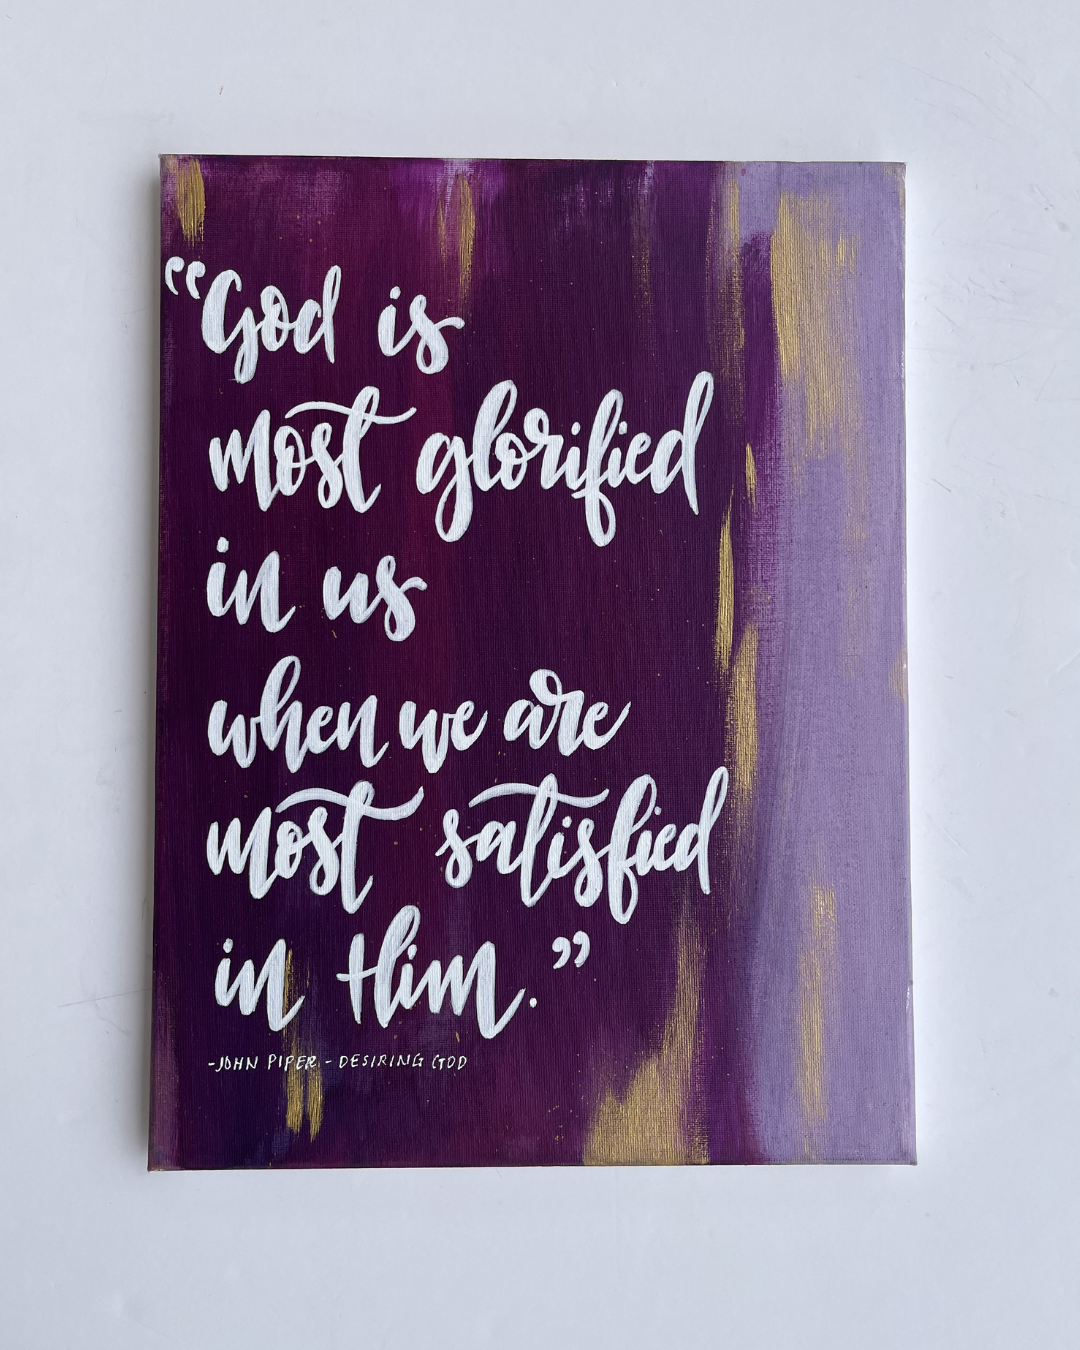 “God is
most glorified
in us
when we are
most satisfied
in Him.”
-JOHN PIPER - DESIRING GOD